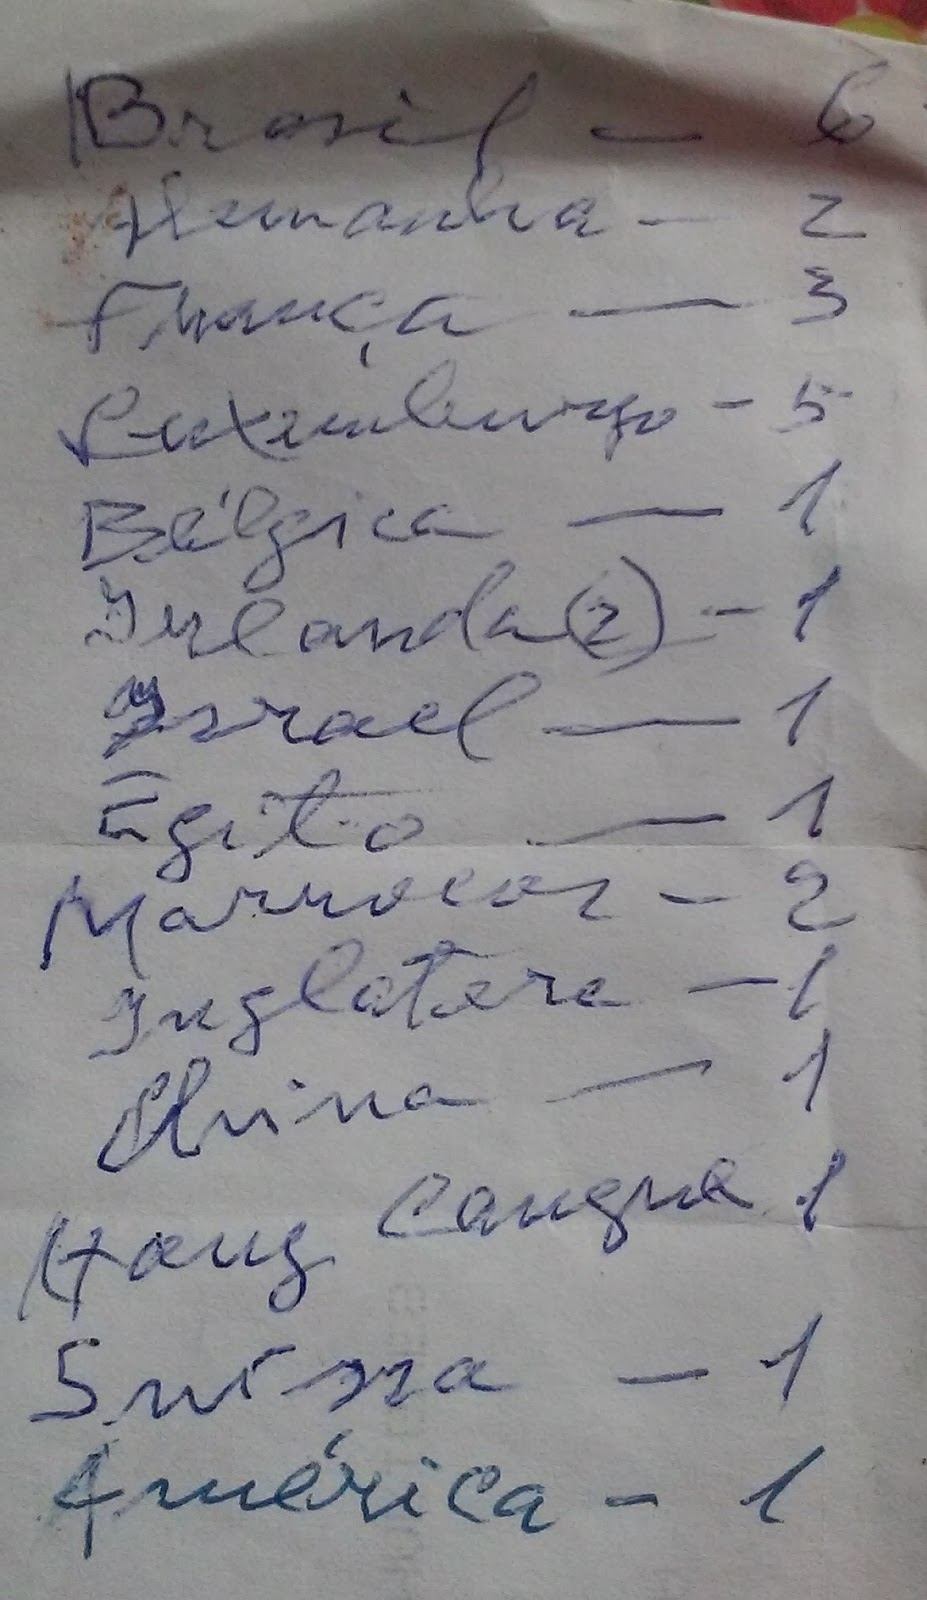 Brasil — 6
Alemanha — 2
França — 3
Luxemburgo - 5
Bélgica — 1
Irlanda (2) - 1
Israel — 1
Egito — 1
Marrocos - 2
Inglatera - 1
China — 1
Hong Congue 1
Suíssa - 1
América - 1